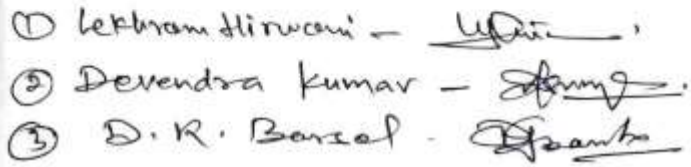 ① Lekhram Hirwani -
② Devendra Kumar -
③ D. R. Barsol -